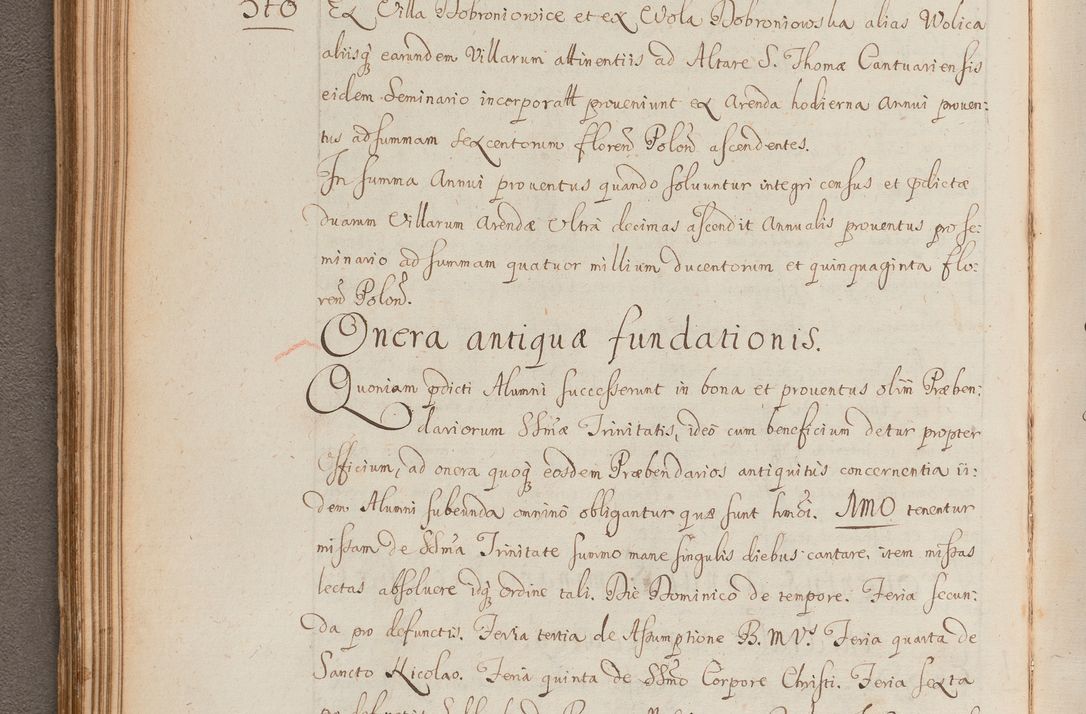 5to Ex Villa Dobroniowice et ex Wola Dobroniowska alias Wolica
aliisq́ earundem Villarum attinentiis ad Altare S. Thomæ Cantuariensis
eidem Seminario incorporatt proveniunt ex Arenda hodierna Annui proven:
tus ad summam sexcentorum floreñ Poloñ ascendentes.
In summa Annui proventus quando solvuntur integri census et pdictæ
duarum Villarum Arendæ Ultrà decimas ascendit Annualis proventus pro se:
minario ad summam quatuor millium ducentorum et quinquaginta flo:
reñ Poloñ.
Onera antiquæ fundationis.
Quoniam pdicti Alumni successerunt in bona et proventus olim̃ Præben:
dariorum SSm̃æ Trinitatis, ideò cum beneficium detur propter
Officium, ad onera quoq́ eosdem Præbendarios antiquitùs concernentia ii:
dem Alumni subeunda omninò obligantur quæ sunt hm̃oi. 1MO tenentur
missam de SSm̃a Trinitate summo mane singulis diebus cantare, item missas
lectas absolvere idq́ ordine tali. Die Dominicô de tempore. Feria secun:
da pro defunctis. Feria tertia de Assumptione B. M V. Feria quarta de
Sancto Nicolao. Feria quinta de SSm̃o Corpore Christi. Feria sexta